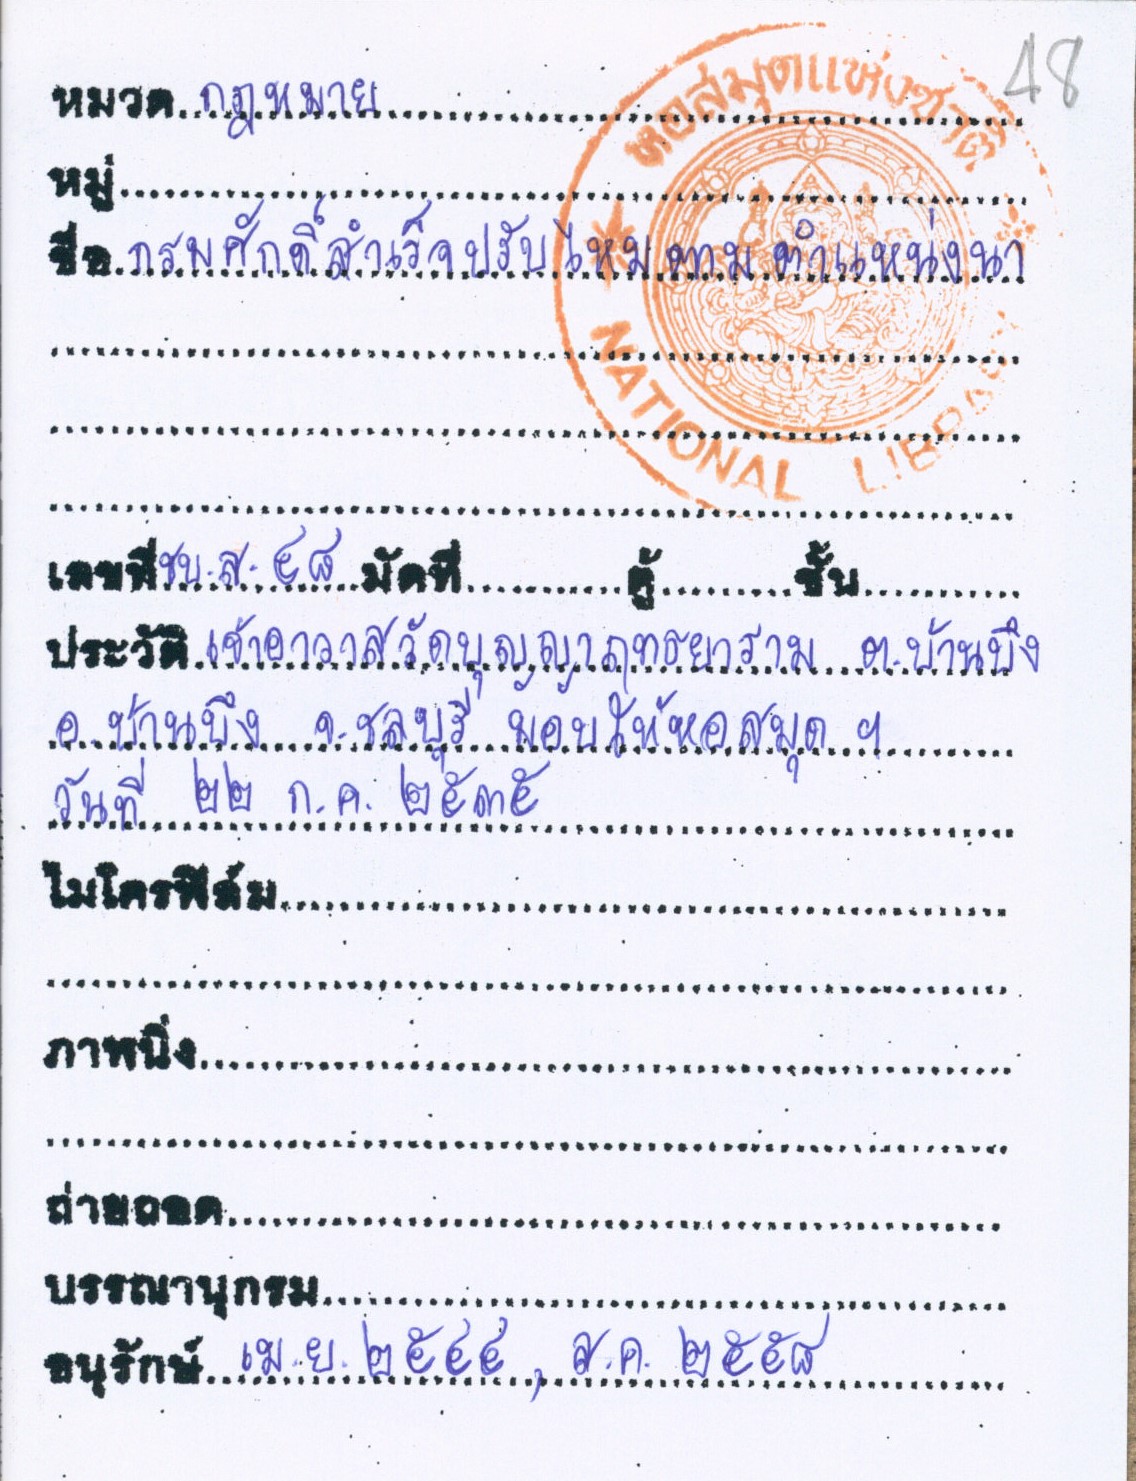 48
หอสมุดแห่งชาติ
หมวด กฎหมาย
หมู่
ชื่อ กรมศักดิ์สำเร็จปรับไหมตามตำแหน่งนา
NATIONAL LIBRARY
เลขที่ ชบ.ส. ๔๘ มัดที่ ตู้ ชั้น
ประวัติ เจ้าอาวาสวัดบุญญาฤทธยาราม ต.บ้านบึง
อ.บ้านบึง จ.ชลบุรี มอบให้หอสมุด ฯ
วันที่ ๒๒ ก.ค. ๒๕๓๕
ไมโครฟิล์ม
ภาพนิ่ง
ถ่ายถอด
บรรณานุกรม
อนุรักษ์ เม.ย. ๒๕๔๔, ส.ค. ๒๕๕๘